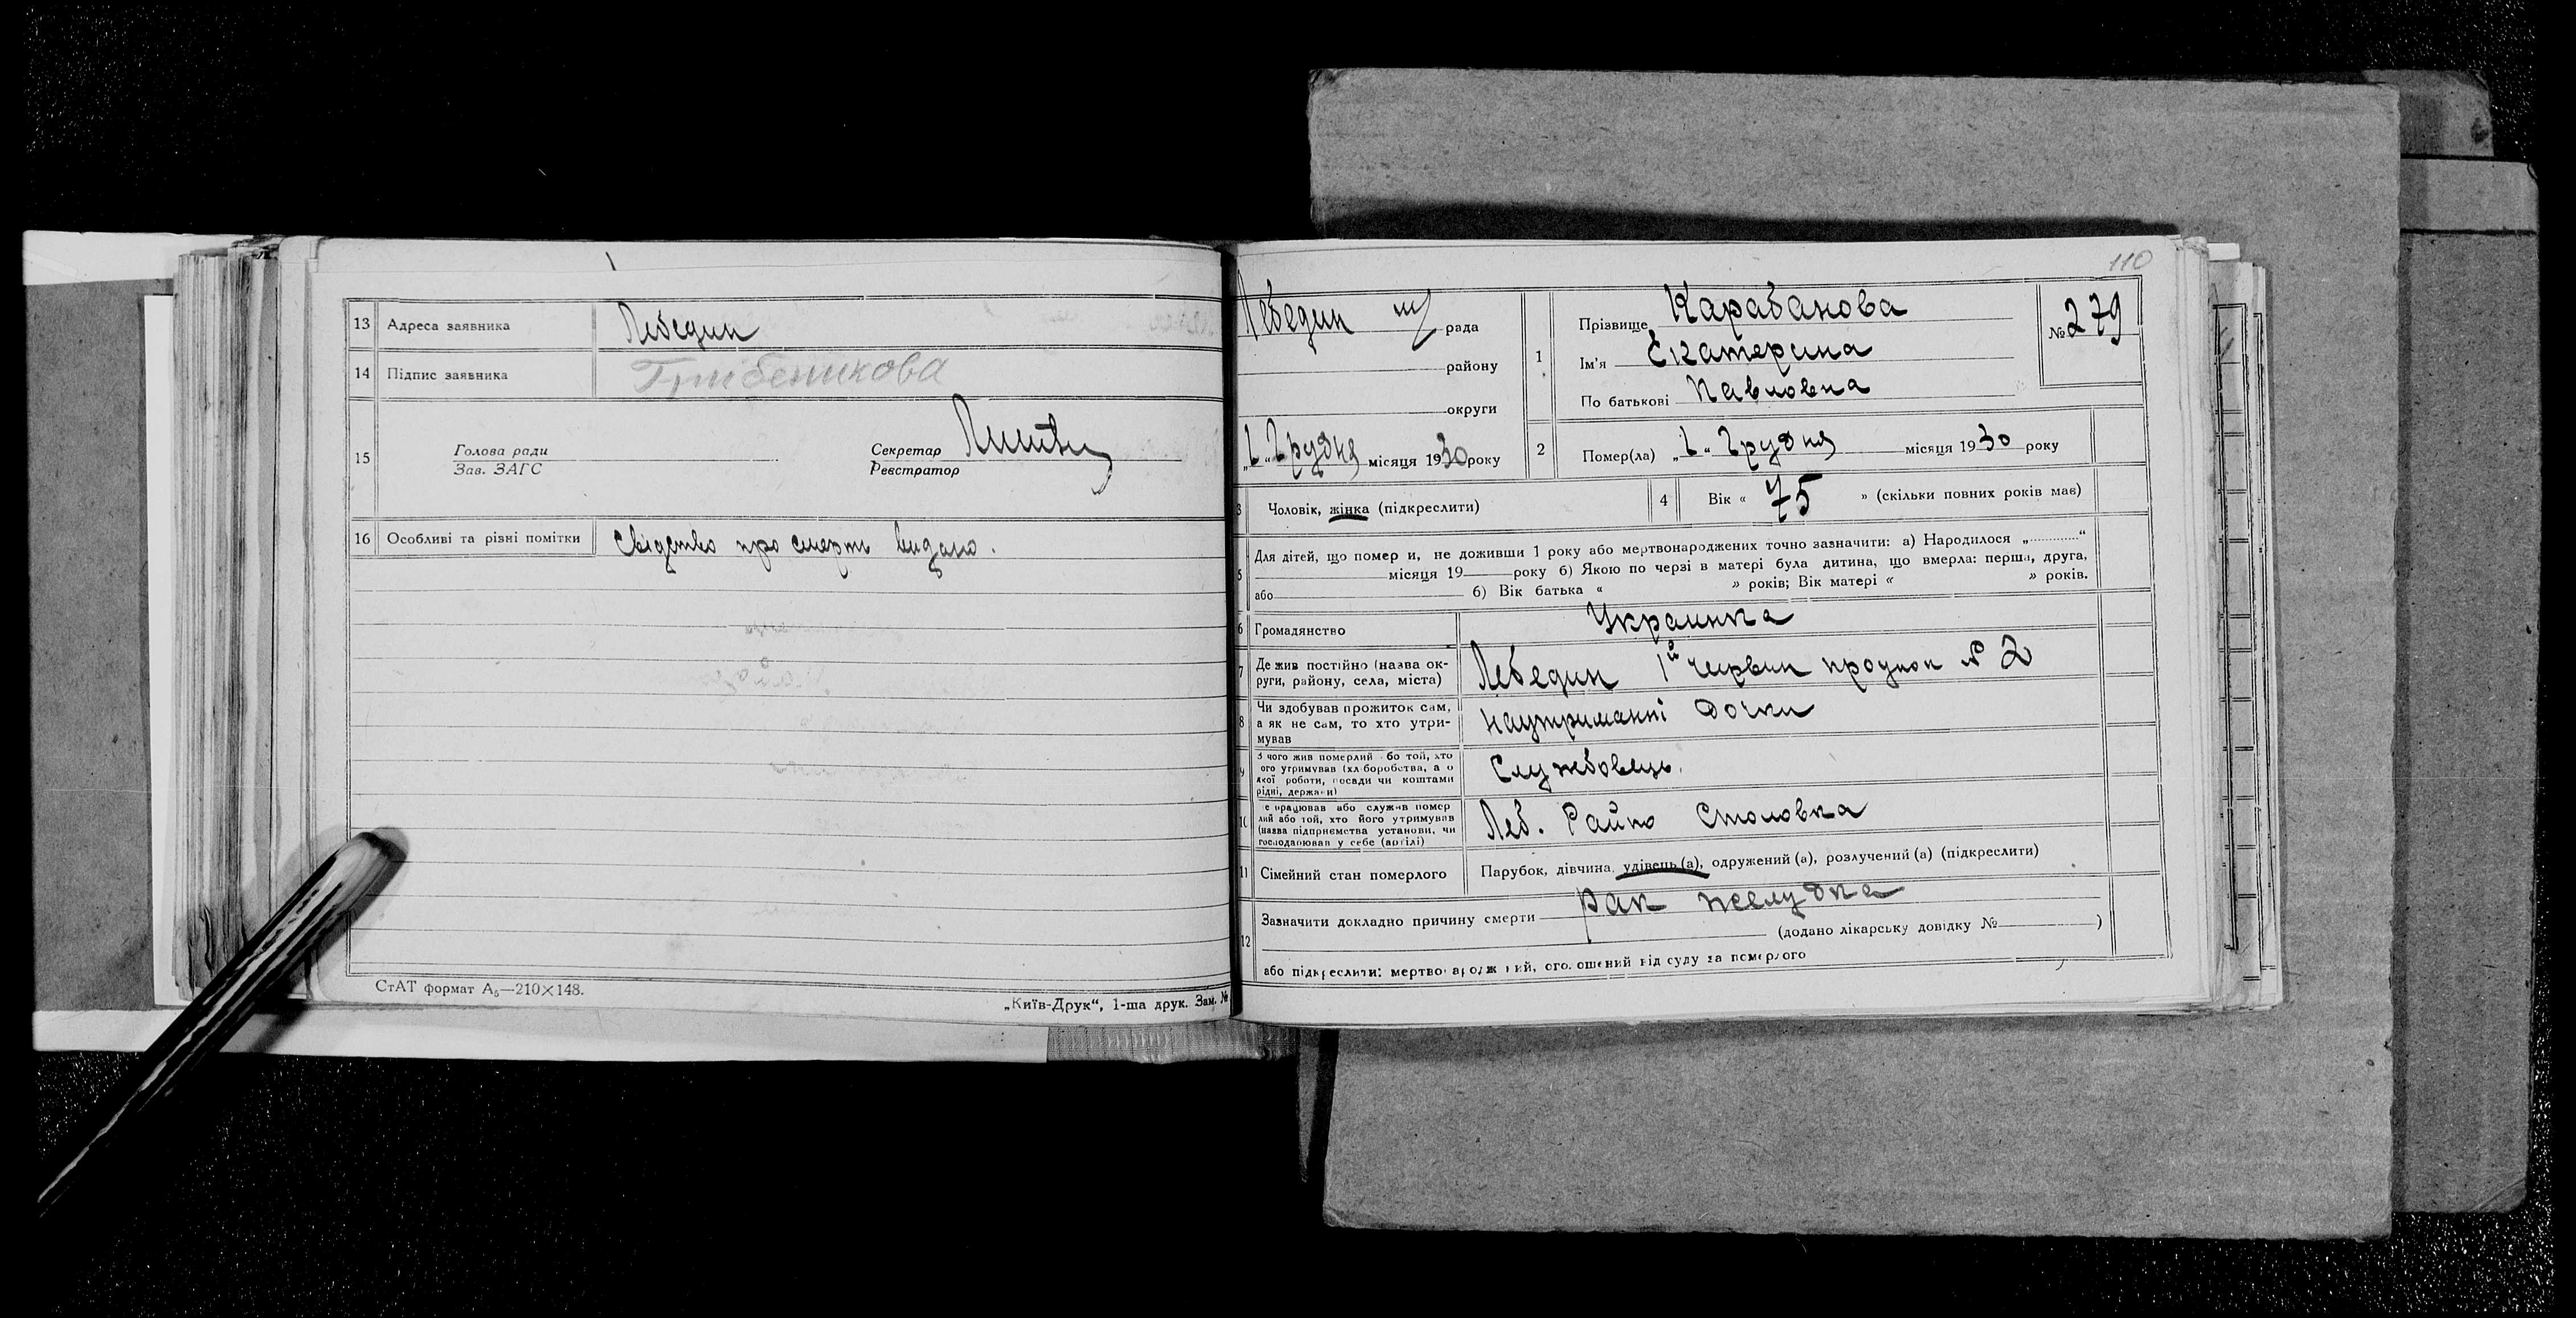 13 Адреса заявника Лебедин
14 Підпис заявника
15 Голова ради
Зав. ЗАГС
Секретар
Реєстратор
16 Особливі та різні помітки Свідцтво про смерть видано.
СтАТ формат А₅—210×148.
„Київ-Друк“, 1-ша друк. Зам. №
110
Лебедин м/ рада
району
округи
„1“ Грудня місяця 1930 року
1 Прізвище Карабанова
Ім'я Екатерина
По батькові Павловна
№ 279
2 Помер(ла) „1“ Грудня місяця 1930 року
3 Чоловік, жінка (підкреслити)
4 Вік « 75 » (скільки повних років має)
5 Для дітей, що померли, не доживши 1 року або мертвонароджених точно зазначити: а) Народилося „............“
місяця 19 року б) Якою по черзі в матері була дитина, що вмерла: перша, друга,
або б) Вік батька « » років; Вік матері « » років.
6 Громадянство Украинка
7 Де жив постійно (назва округи, району, села, міста) Лебедин 1й червн № 2
8 Чи здобував прожиток сам,
а як не сам, то хто утримував
наутриманні дочки
9 З чого жив померлий або той, хто
його утримував (хліборобства, а о
якої роботи, посади чи коштами
рідні, держави)
Службовець.
10 Де працював або служив помер
лий або той, хто його утримував
(назва підприємства установи, чи
господарював у себе (артілі)
Леб. Райко Столовка
11 Сімейний стан померлого Парубок, дівчина, удівець(а), одружений(а), розлучений(а) (підкреслити)
12 Зазначити докладно причину смерти рак желудка
(додано лікарську довідку № )
або підкреслити: мертвонароджений, оголошений від суду за померлого